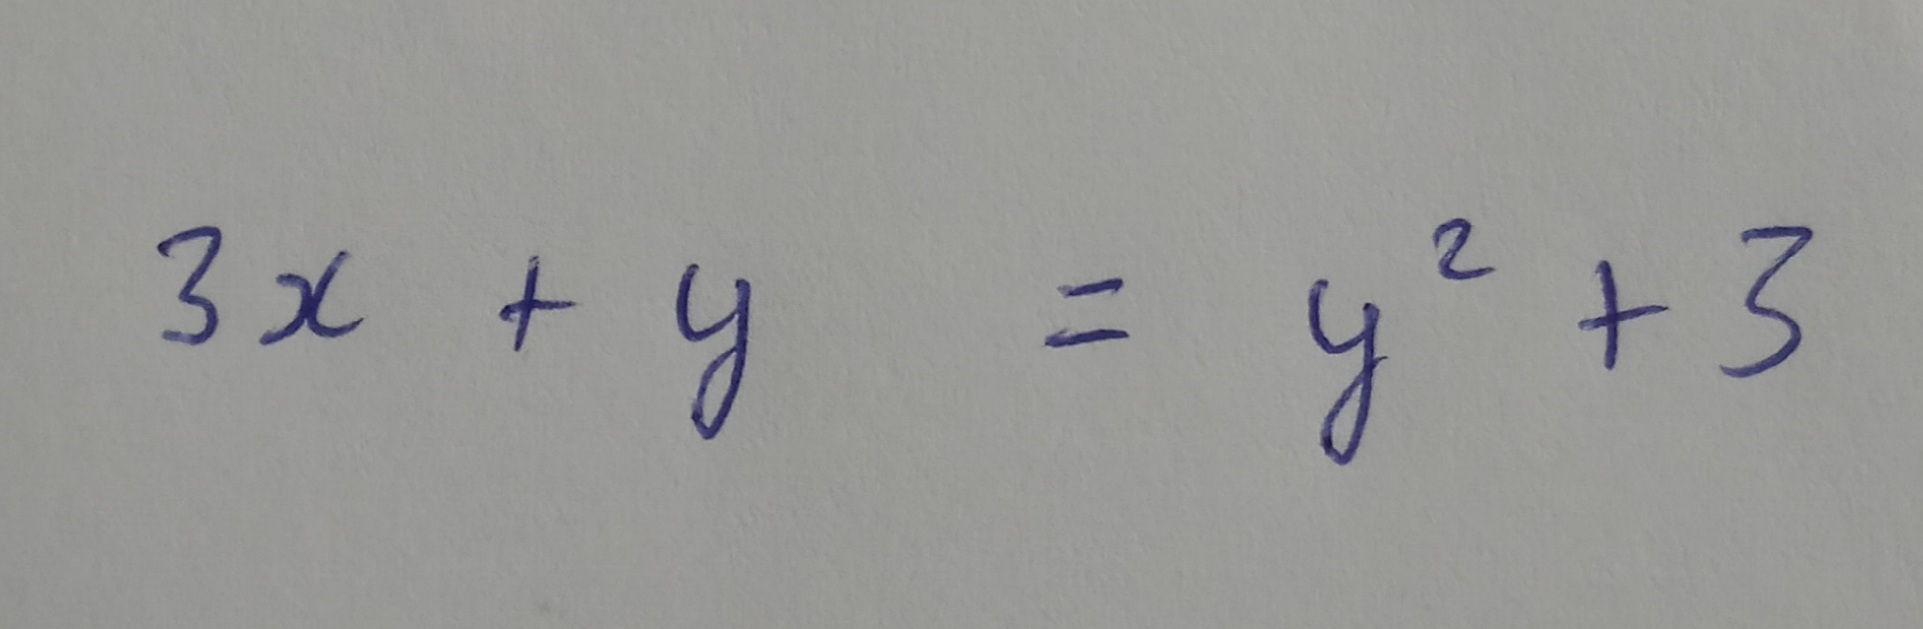 3x + y = y² + 3